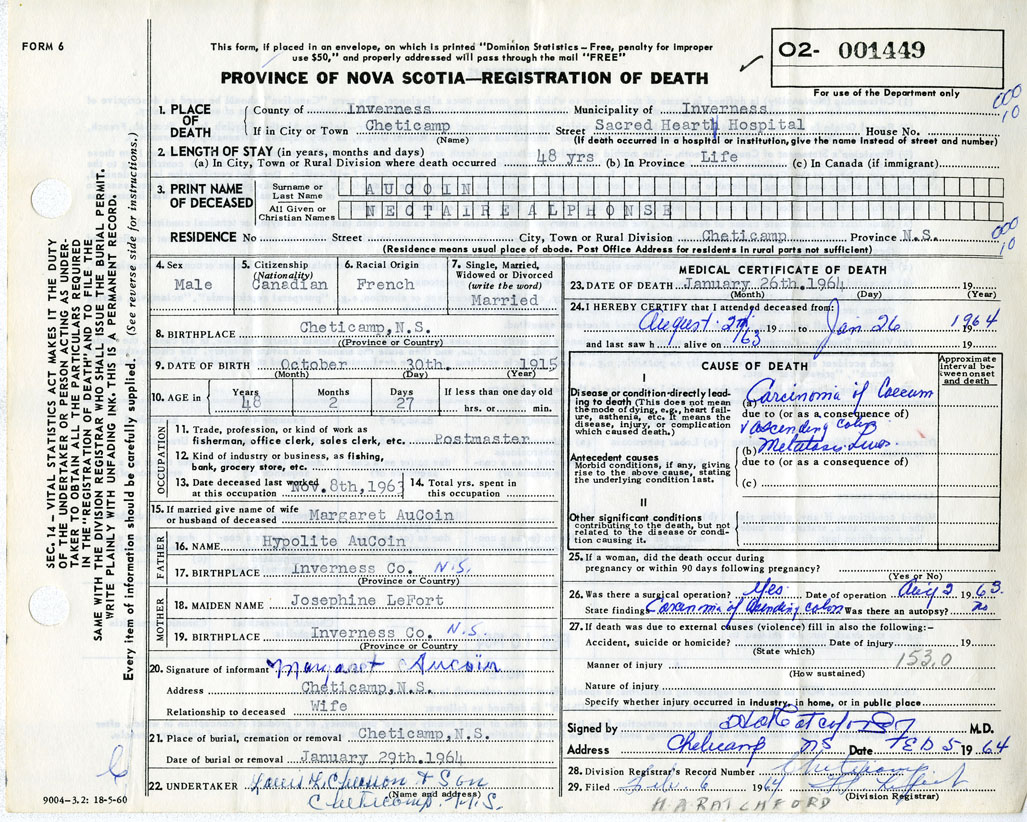 FORM 6
This form, if placed in an envelope, on which is printed "Dominion Statistics—Free, penalty for improper
use $50," and properly addressed will pass through the mail "FREE"
PROVINCE OF NOVA SCOTIA—REGISTRATION OF DEATH
02- 001449
For use of the Department only
000
10
SEC. 14 – VITAL STATISTICS ACT MAKES IT THE DUTY
OF THE UNDERTAKER OR PERSON ACTING AS UNDER-
TAKER TO OBTAIN ALL THE PARTICULARS REQUIRED
IN THE "REGISTRATION OF DEATH" AND TO FILE THE
SAME WITH THE DIVISION REGISTRAR WHO SHALL ISSUE THE BURIAL PERMIT.
WRITE PLAINLY WITH UNFADING INK. THIS IS A PERMANENT RECORD.
Every item of information should be carefully supplied. (See reverse side for instructions.)
1. PLACE OF DEATH
County of Inverness Municipality of Inverness
If in City or Town Cheticamp Street Sacred Heart Hospital House No.
(Name) (If death occurred in a hospital or institution, give the name instead of street and number)
2. LENGTH OF STAY (in years, months and days)
(a) In City, Town or Rural Division where death occurred 48 yrs (b) In Province Life (c) In Canada (if immigrant)
3. PRINT NAME OF DECEASED
Surname or Last Name AUCOIN
All Given or Christian Names NECTAIRE ALPHONSE
000
10
RESIDENCE No Street City, Town or Rural Division Cheticamp Province N.S.
(Residence means usual place of abode. Post Office Address for residents in rural parts not sufficient)
4. Sex
Male
5. Citizenship
(Nationality)
Canadian
6. Racial Origin
French
7. Single, Married,
Widowed or Divorced
(write the word)
Married
8. BIRTHPLACE Cheticamp, N.S.
(Province or Country)
9. DATE OF BIRTH October 30th. 1915
(Month) (Day) (Year)
10. AGE in
Years Months Days If less than one day old
48 2 27 hrs. or min.
OCCUPATION
11. Trade, profession, or kind of work as
fisherman, office clerk, sales clerk, etc. Postmaster
12. Kind of industry or business, as fishing,
bank, grocery store, etc.
13. Date deceased last worked
at this occupation Nov. 8th, 1963
14. Total yrs. spent in
this occupation
15. If married give name of wife
or husband of deceased Margaret AuCoin
FATHER
16. NAME Hypolite AuCoin
17. BIRTHPLACE Inverness Co. N.S.
(Province or Country)
MOTHER
18. MAIDEN NAME Josephine LeFort
19. BIRTHPLACE Inverness Co. N.S.
(Province or Country
20. Signature of informant Margaret Aucoin
Address Cheticamp, N.S.
Relationship to deceased Wife
21. Place of burial, cremation or removal Cheticamp, N.S.
Date of burial or removal January 29th. 1964
22. UNDERTAKER & Son
(Name and address)
Cheticamp. N.S.
9004-3.2: 18-5-60
MEDICAL CERTIFICATE OF DEATH
23. DATE OF DEATH January 26th. 1964 19
(Month) (Day) (Year)
24. I HEREBY CERTIFY that I attended deceased from:
August 2nd 19 63 to Jan. 26 1964
and last saw h alive on 19
CAUSE OF DEATH
Approximate
interval be-
tween onset
and death
I
Disease or condition directly lead-
ing to death (This does not mean
the mode of dying, e.g., heart fail-
ure, asthenia, etc. It means the
disease, injury, or complication
which caused death.)
(a) Carcinoma of Caecum
due to (or as a consequence of)
& ascending colon
Antecedent causes
Morbid conditions, if any, giving
rise to the above cause, stating
the underlying condition last.
(b)
due to (or as a consequence of)
(c)
II
Other significant conditions
contributing to the death, but not
related to the disease or condi-
tion causing it.
25. If a woman, did the death occur during
pregnancy or within 90 days following pregnancy?
(Yes or No)
26. Was there a surgical operation? Yes Date of operation Aug 2 1963.
State findings Carcinoma of ascending colon Was there an autopsy? no
27. If death was due to external causes (violence) fill in also the following:-
Accident, suicide or homicide? Date of injury 19
(State which)
153.0
Manner of injury
(How sustained)
Nature of injury
Specify whether injury occurred in industry, in home, or in public place
Signed by M.D.
Address Cheticamp NS Date FEB 5 1964
28. Division Registrar's Record Number
29. Filed Feb. 6 1964
(Division Registrar)
H.A. RATCHFORD